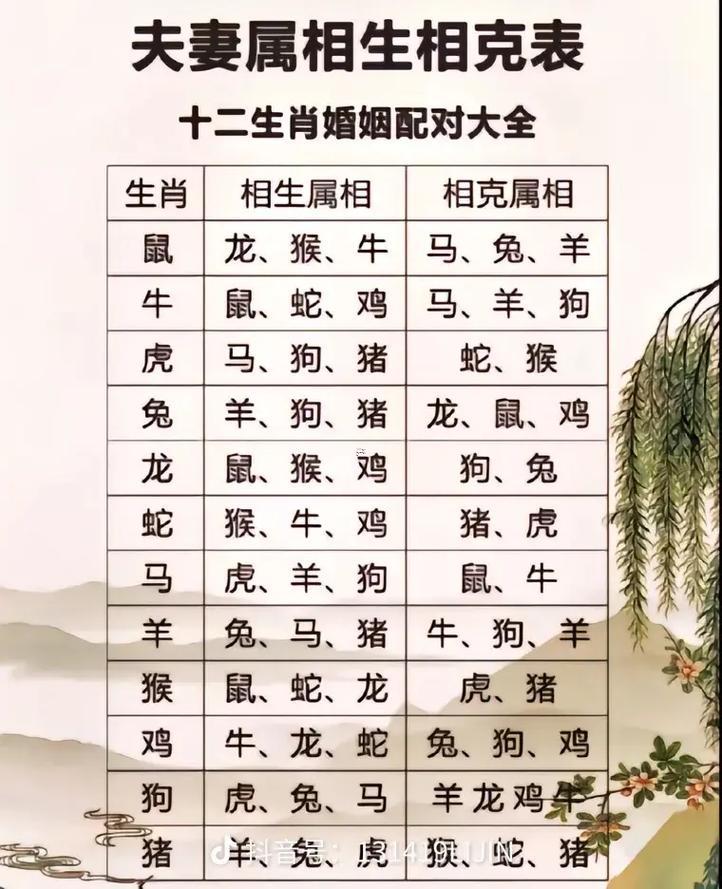 夫妻属相生相克表
十二生肖婚姻配对大全
生肖 相生属相 相克属相
鼠 龙、猴、牛 马、兔、羊
牛 鼠、蛇、鸡 马、羊、狗
虎 马、狗、猪 蛇、猴
兔 羊、狗、猪 龙、鼠、鸡
龙 鼠、猴、鸡 狗、兔
蛇 猴、牛、鸡 猪、虎
马 虎、羊、狗 鼠、牛
羊 兔、马、猪 牛、狗、羊
猴 鼠、蛇、龙 虎、猪
鸡 牛、龙、蛇 兔、狗、鸡
狗 虎、兔、马 羊龙鸡牛
猪 羊、兔、虎 猴、蛇、猪
抖音号：